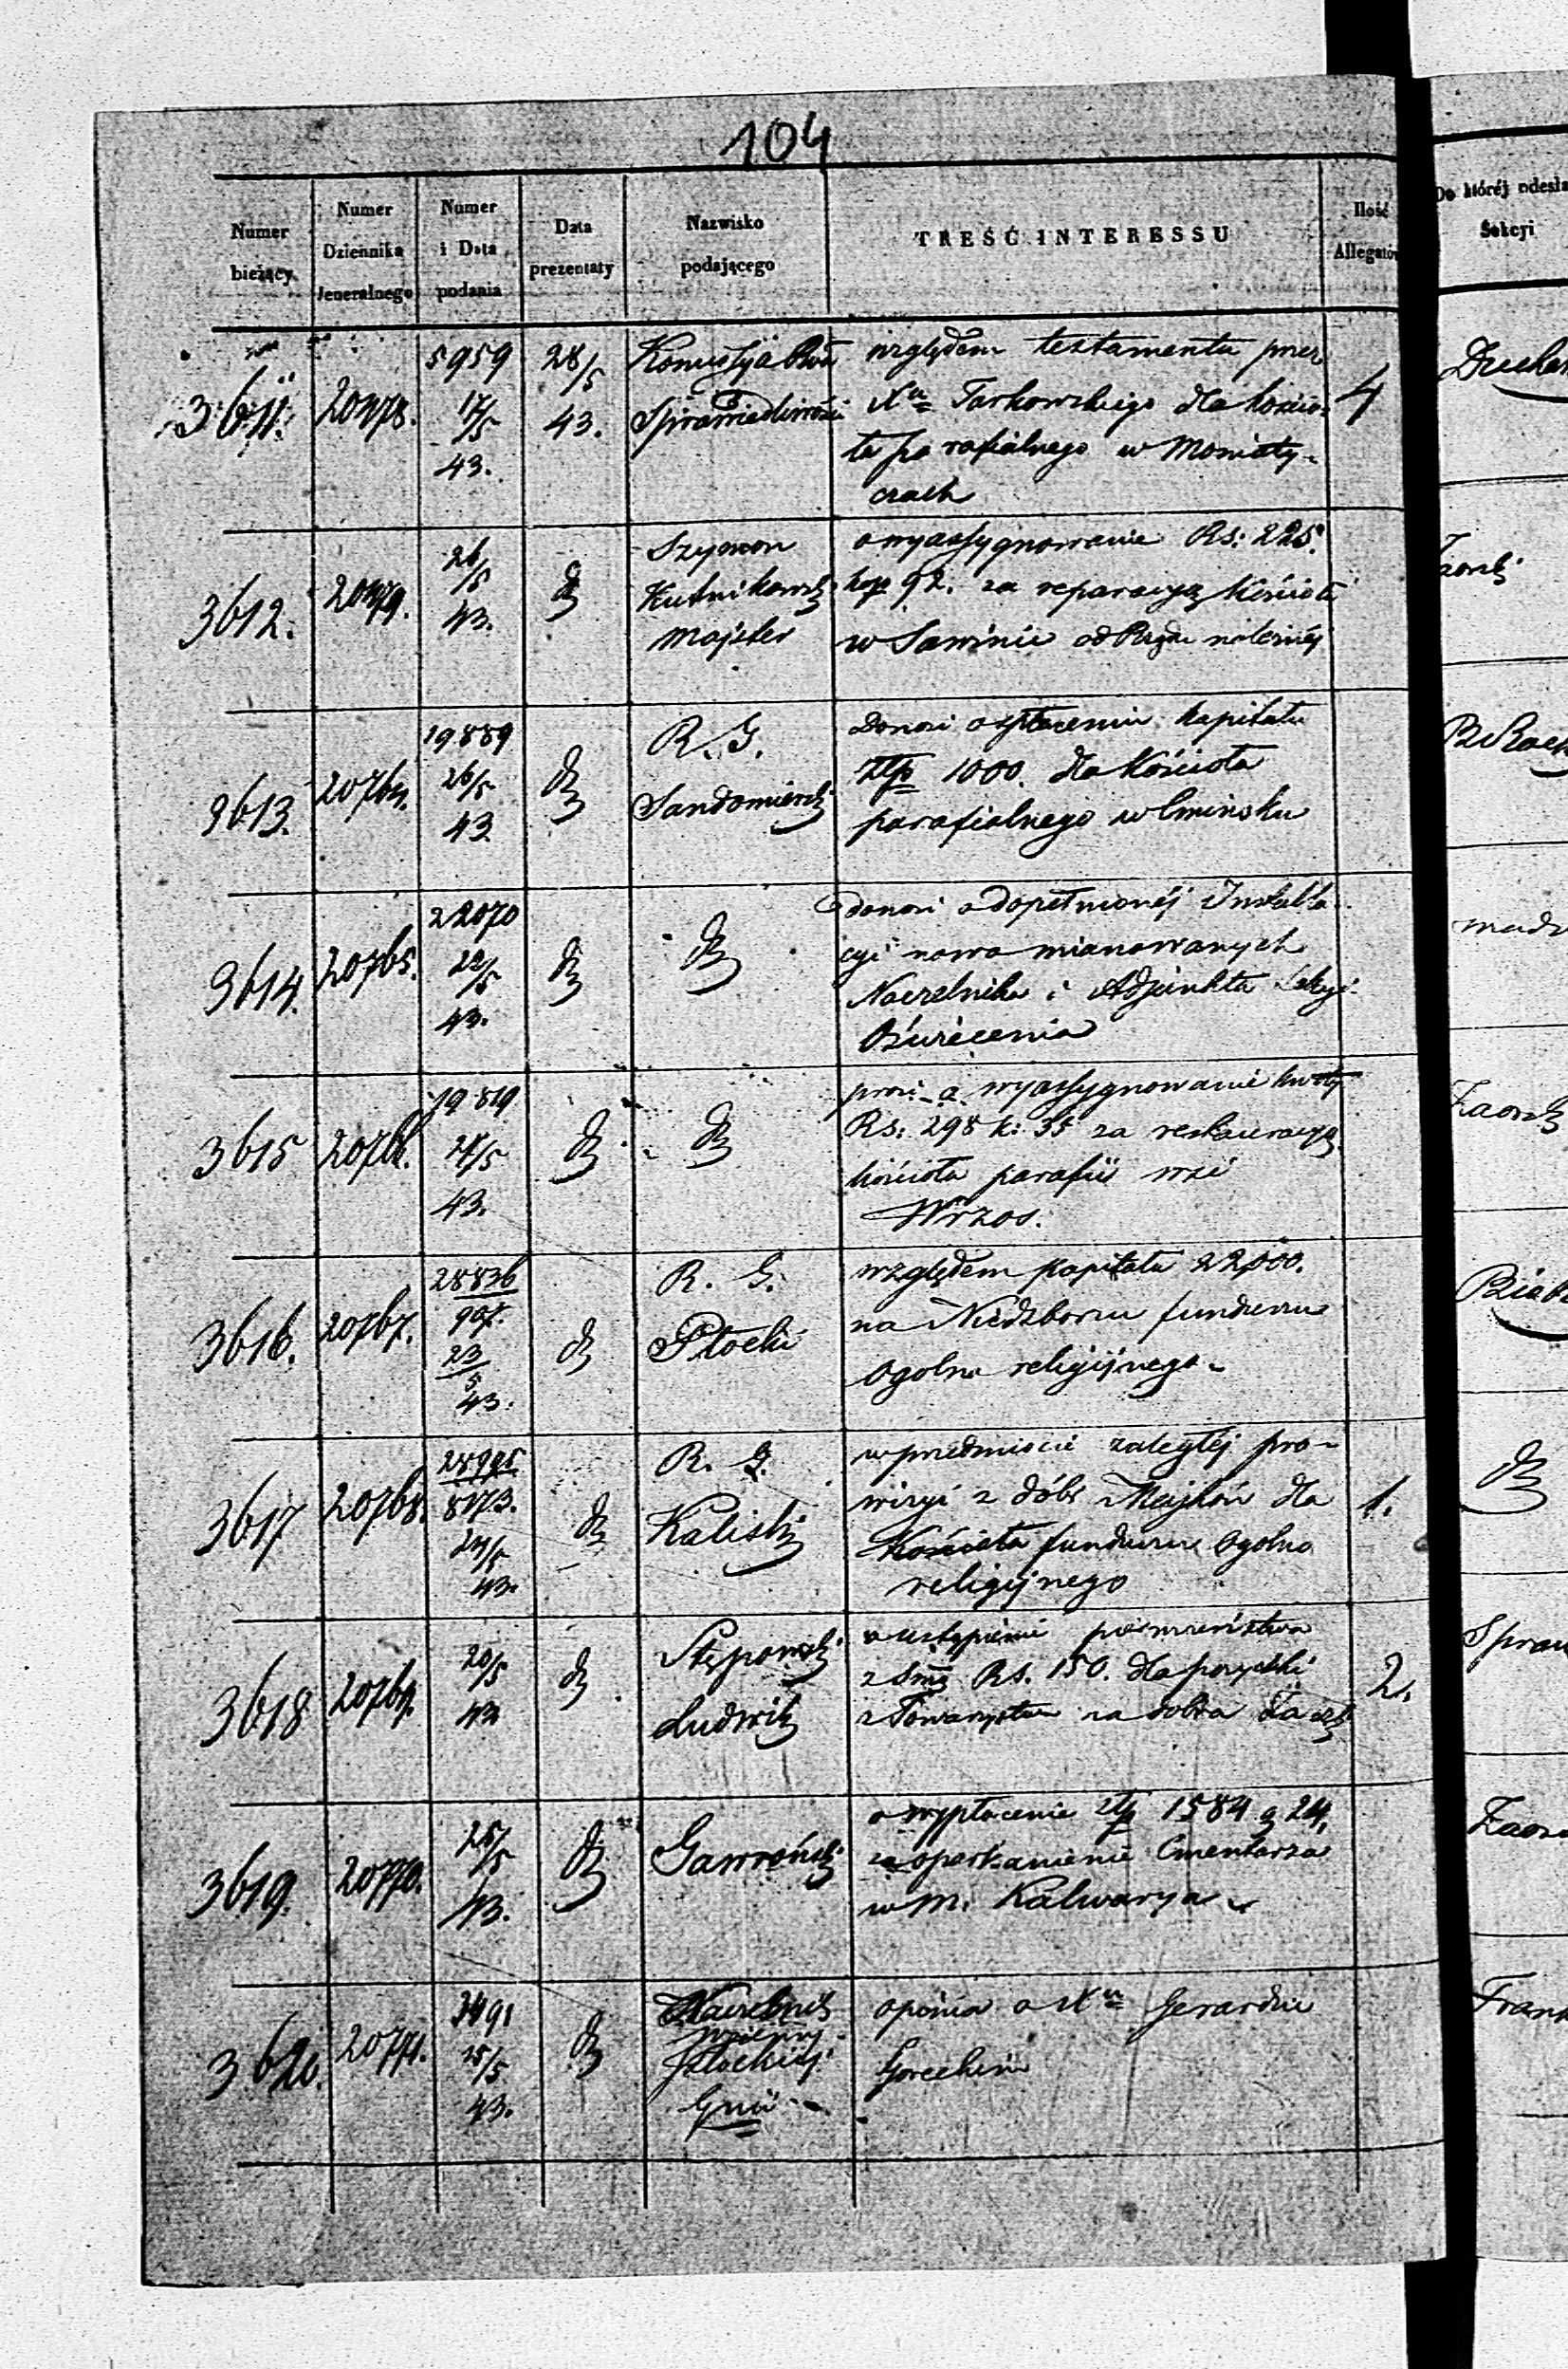 104
Numer bieżący
Numer Dziennika Jeneralnego
Numer i Data podania
Data prezentaty
Nazwisko podającego
TREŚĆ INTERESSU
Ilość Allegatów
Do któréj odesła
Sekcyi
3611.
5959
17/5
43.
28/5
43.
Sprawiedliwości
względem testamentu przez
Xa Tarkowskiego dla kościo-
ła parafialnego w Moniaty-
czach
4
3612.
26/5
43.
Szymon
Majster
o wyassygnowanie Rs: 225.
kop 92. za reparacyą kościoła
w Sawinie od Rządu należnéj
3613.
19889
26/5
43
R. G.
Sandomierski
donosi o spłaceniu kapitału
złp 1000. dla kościoła
parafialnego w Cmińsku
3614.
20765.
22070
22/5
43.
dto
dto
donosi o dopełnionéj Installa-
cyi nowo mianowanych
Naczelnika i Adjunkta Sekcyi
Oświecenia
3615
19819
43.
dto
dto
prosi o wyassygnowanie kwoty
Rs: 298 k: 35 za restauracyą
kościoła parafii wsi
Wrzos.
3616.
20767.
28836
23/5
43.
dto
R. G.
Płocki
względem kapitału 22,000.
na funduszu
Ogolno religijnego
3617
20768.
8173.
24/5
43.
dto
R. G.
Kaliski
w przedmiocie zaległéj pro-
wizyi z dóbr Majków dla
Kościoła funduszu Ogolno
religijnego
1.
dto
3618
20769.
20/5
43
dto
Stępowski
Ludwik
o ustąpienie pierwszeństwa
z Smą Rs. 150. dla pożyczki
z Towarzystwa na dobra
2.
Spraw
3619.
20770.
25/5
43.
dto
Gawroński
o wypłacenie złp 1584 g 24.
za oparkanienie Cmentarza
w m. Kalwarya
3620.
20771.
3491
25/5
43.
dto
Naczelnik
wojenny
Płockiéj
Gnii
opinia o Xu Gerardzie
Goreckim